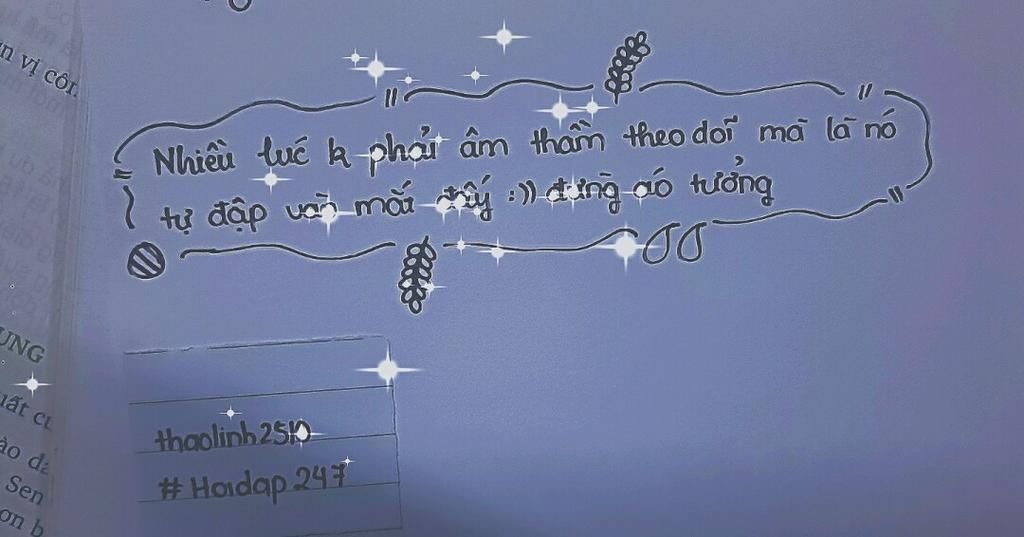 n vị côn
Nhiều lúc k phải âm thầm theo dõi mà là nó
tự đập vào mắt đấy :)) đừng ảo tưởng
UNG
uất cu
ào dà
Sen
ơn b
thaolinh2510
#Hoidap247